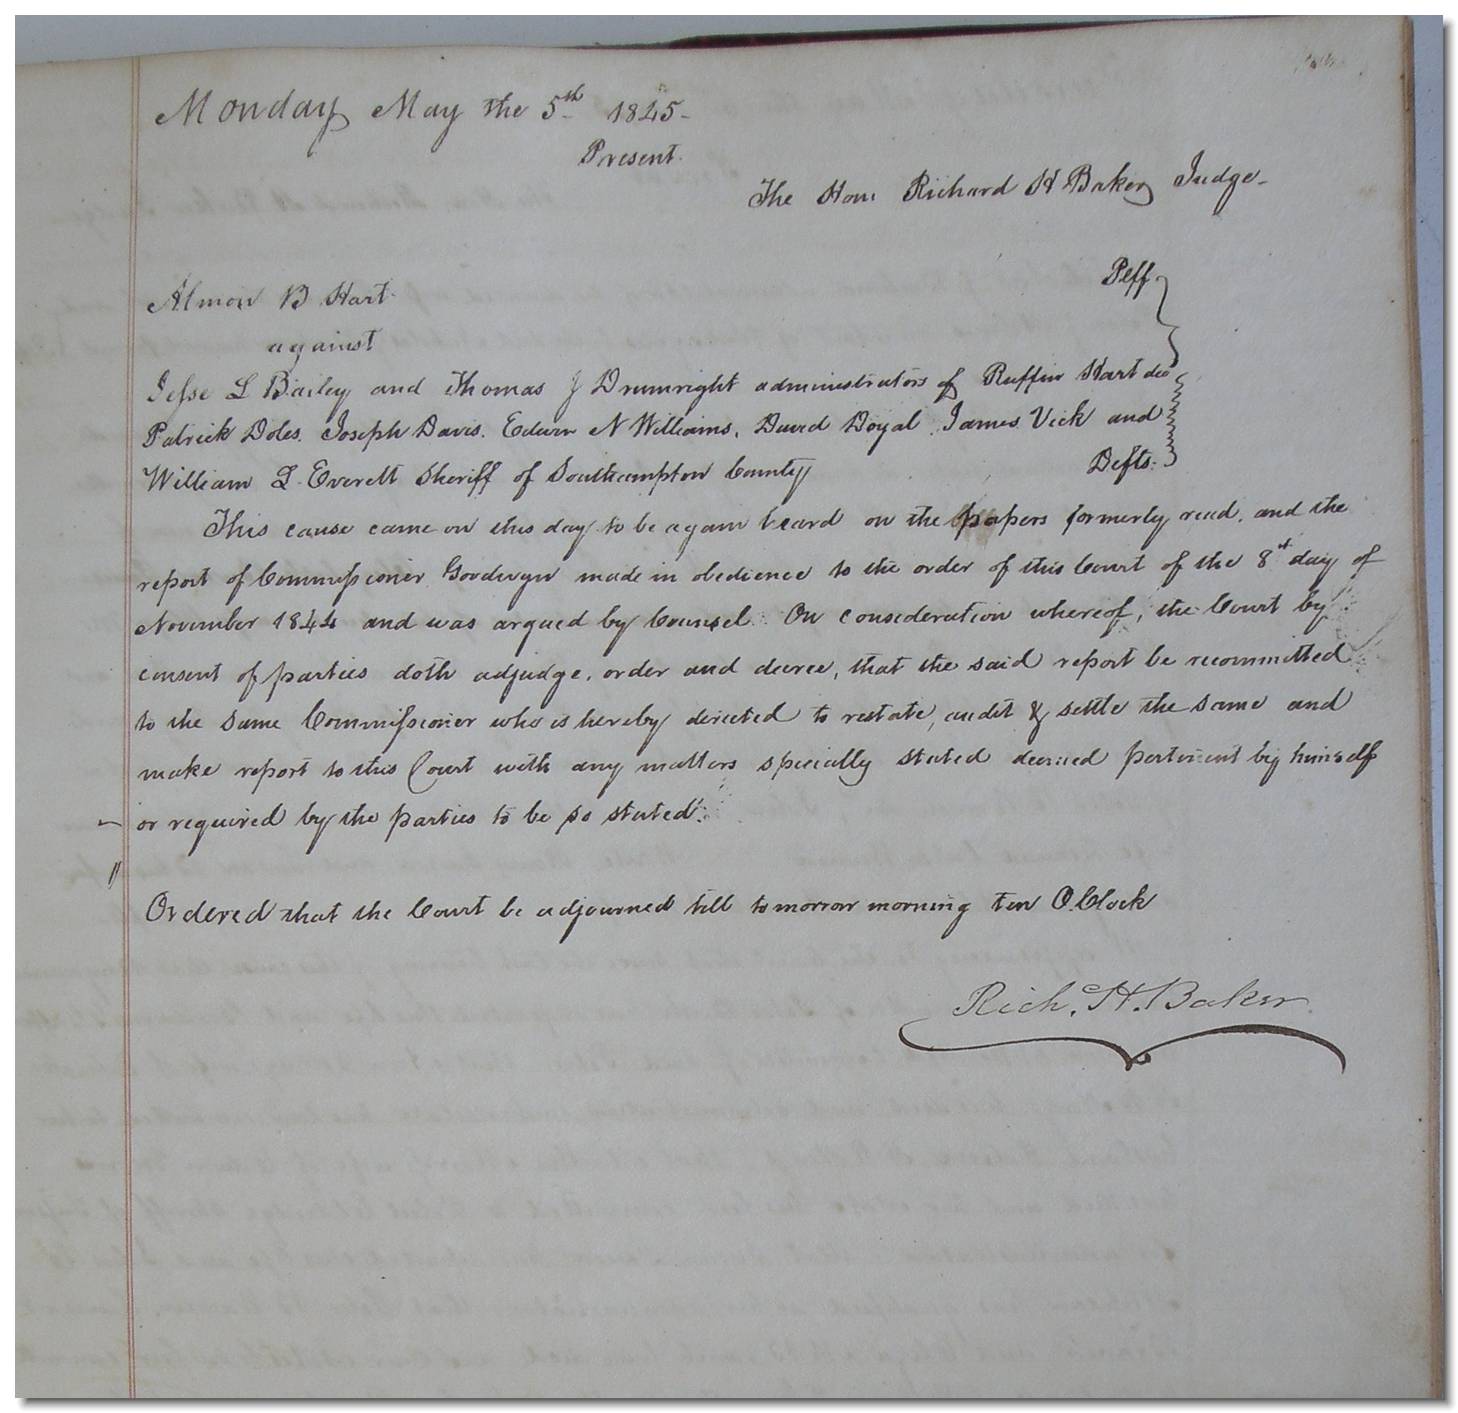 Monday May the 5th 1845-
Present.
The Hon: Richard H Baker Judge-
Almon B Hart Plff
against
Jesse L Bailey and Thomas J Drumright administrators of Ruffin Hart dec
Patrick Doles. Joseph Davis. Edwin N Williams, David Doyal, James Vick and
William L. Everett Sheriff of Southampton County Defts:
This cause came on this day to be again heard on the papers formerly read, and the
report of Commissioner Goodwyn made in obedience to the order of this Court of the 8st day of
November 1844 and was argued by Counsel. On consideration whereof, the Court by
consent of parties doth adjudge, order and decree, that the said report be recommitted
to the same Commissioner who is hereby directed to restate, audit & settle the same and
make report to this Court with any matters specially stated deemed pertinent by himself
or required by the parties to be so stated.
Ordered that the Court be adjourned till tomorrow morning ten O.Clock
Rich. H. Baker